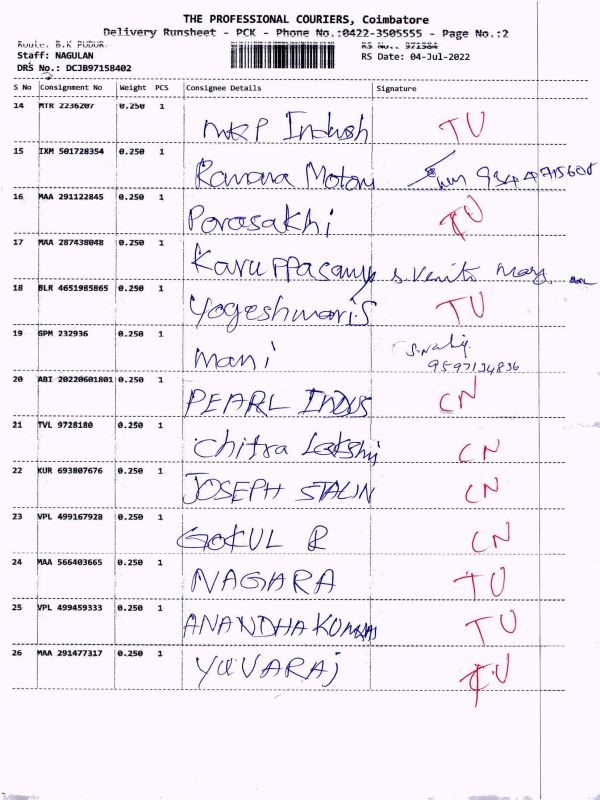 THE PROFESSIONAL COURIERS, Coimbatore
Delivery Runsheet - PCK - Phone No.:0422-3505555 - Page No.:2
Route: B.K PUDUR
RS No.: 971584
Staff: NAGULAN
RS Date: 04-Jul-2022
DRS No.: DCJB97158402
S No Consignment No Weight PCS Consignee Details Signature
14 MTR 2236207 0.250 1 MKP Indush TU
15 IXM 501728354 0.250 1 Ravana Motors 9344715608
16 MAA 291122845 0.250 1 Parasakhi TU
17 MAA 287438048 0.250 1 Karuppasamy S.
18 BLR 4651985865 0.250 1 Yogeshwari.S TU
19 GPM 232936 0.250 1 mani
9597134836
20 ABI 20220601801 0.250 1 PEARL INDUS CN
21 TVL 9728180 0.250 1 chitra Lakshi CN
22 KUR 693807676 0.250 1 JOSEPH STALIN CN
23 VPL 499167928 0.250 1 GOKUL R CN
24 MAA 566403665 0.250 1 NAGARA TU
25 VPL 499459333 0.250 1 ANANDHAKUMAR TU
26 MAA 291477317 0.250 1 YUVARAJ TU